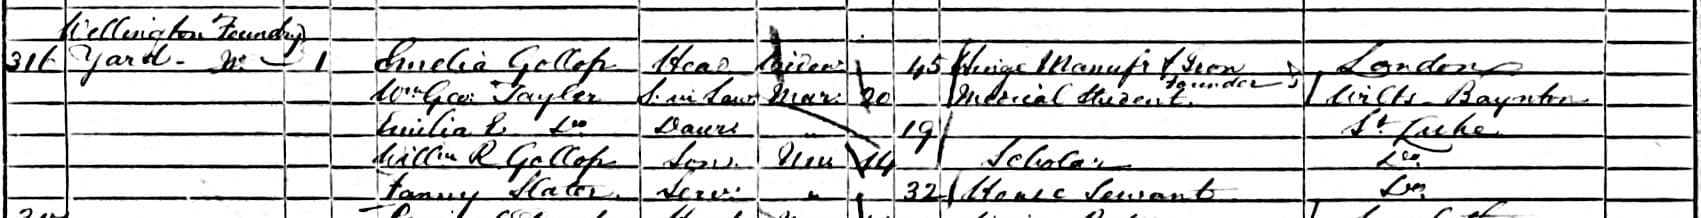 Wellington Foundry
316 Yard - No. 1 Emelia Gollop Head Widow 45 Hinge Manufr & Iron Founder London
Wm Geo: Taylor S. in Law Mar: 20 Medical Student Wilts - Baynton
Emelia E Do Daur: " 19 St Luke
Willm R Gollop Son Unm 14 Scholar Do.
Fanny Slator Serv: " 32 House Servant Do